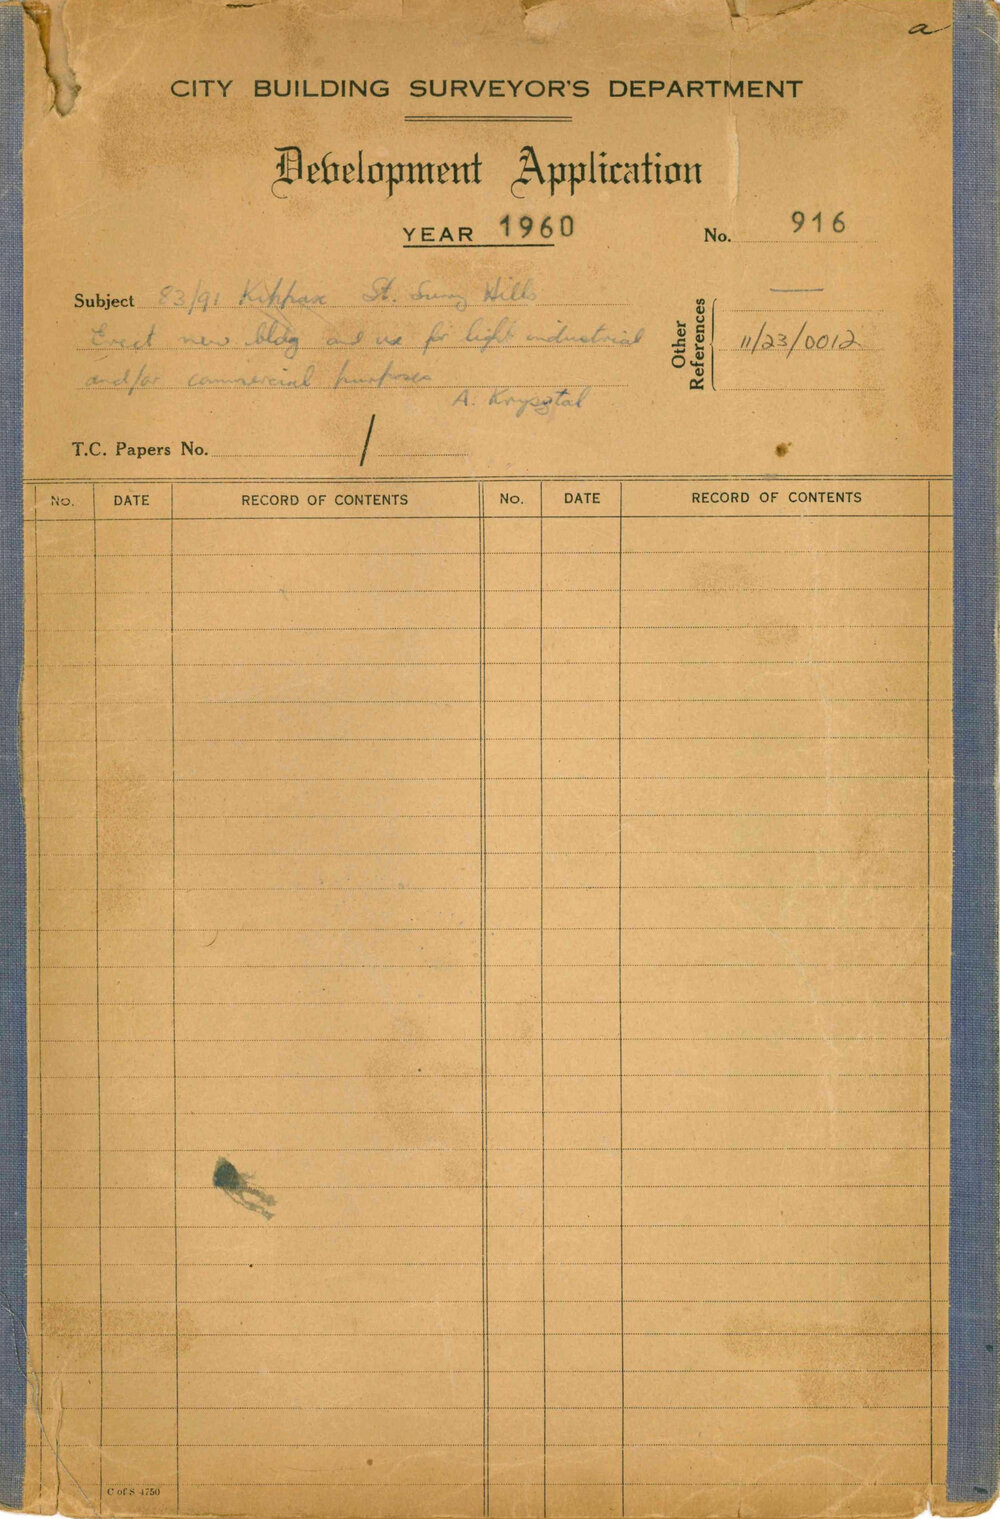 a
CITY BUILDING SURVEYOR'S DEPARTMENT
Development Application
YEAR 1960
No. 916
Subject 83/91 Kippax St. Surry Hills
Erect new bldg and use for light industrial
and/or commercial purposes
A. Krysztal
Other References
11/23/0012
T.C. Papers No. /
No. DATE RECORD OF CONTENTS No. DATE RECORD OF CONTENTS
C of S 4750